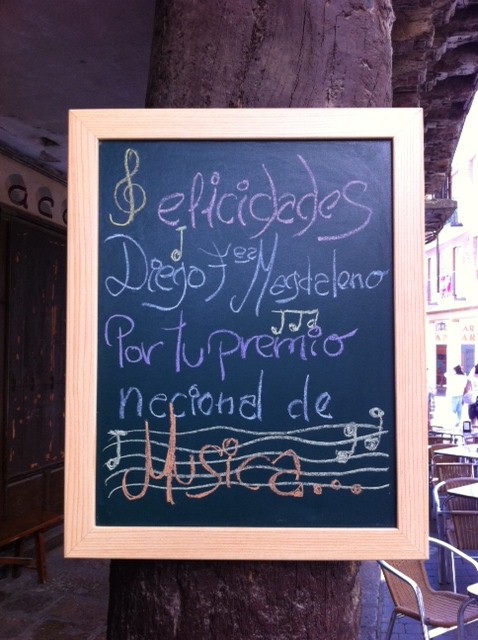 Felicidades
Diego Fez Magdaleno
Por tu premio
nacional de
Musica...